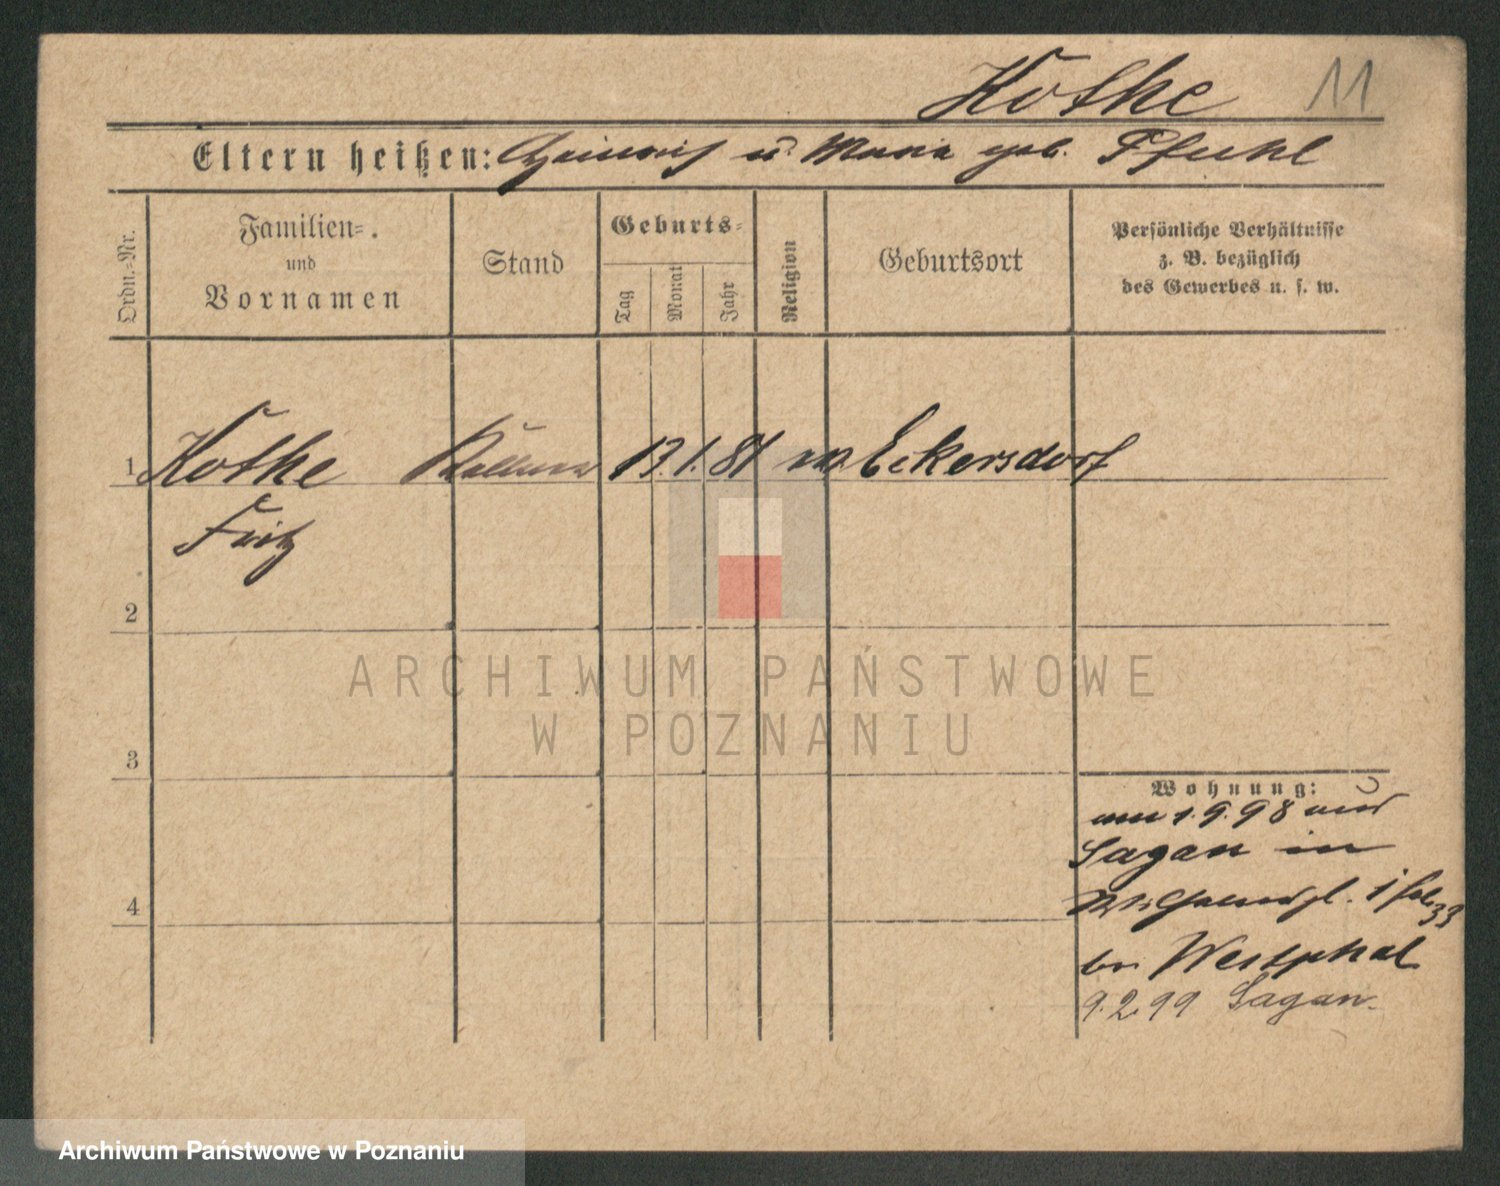 Kothe 11
Eltern heißen: Heinrich u. Maria geb. Pfuhl
Ordn.-Nr.
Familien=
und
Vornamen
Stand
Geburts=
Tag
Monat
Jahr
Religion
Geburtsort
Persönliche Verhältnisse
z. B. bezüglich
des Gewerbes u. s. w.
1 Kothe Kellner 13. 1. 81 Eckersdorf
Fritz
2
3
4
Wohnung:
am 1.9.98 aus
Sagan in
bei Westphal
9.2.99 Sagan.
ARCHIWUM PAŃSTWOWE
W POZNANIU
Archiwum Państwowe w Poznaniu